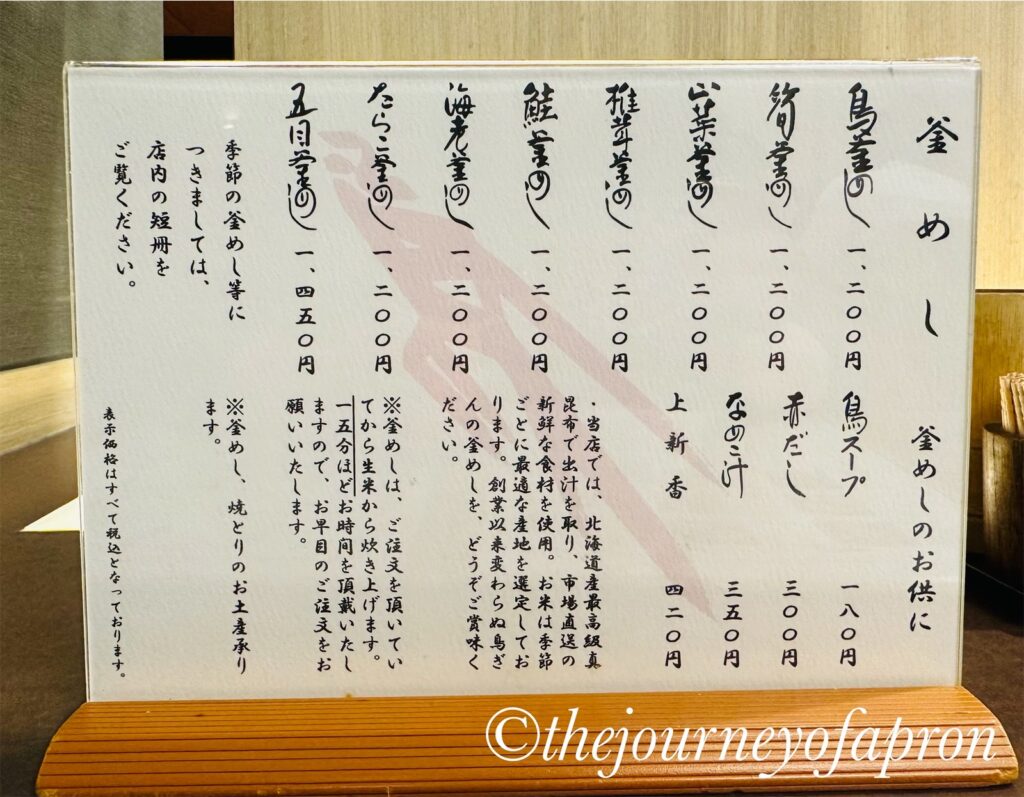 釜めし
鳥釜めし 一、二〇〇円
筍釜めし 一、二〇〇円
山菜釜めし 一、二〇〇円
椎茸釜めし 一、二〇〇円
鮭釜めし 一、二〇〇円
海老釜めし 一、二〇〇円
たらこ釜めし 一、二〇〇円
五目釜めし 一、四五〇円
季節の釜めし等に
つきましては、
店内の短冊を
ご覧ください。
釜めしのお供に
鳥スープ 一八〇円
赤だし 三〇〇円
なめこ汁 三五〇円
上新香 四二〇円
・当店では、北海道産最高級真
昆布で出汁を取り、市場直送の
新鮮な食材を使用。お米は季節
ごとに最適な産地を選定してお
ります。創業以来変わらぬ鳥ぎ
んの釜めしを、どうぞご賞味く
ださい。
※釜めしは、ご注文を頂いてい
てから生米から炊き上げます。
一五分ほどお時間を頂戴いたし
ますので、お早目のご注文をお
願いいたします。
※釜めし、焼とりのお土産承り
ます。
表示価格はすべて税込となっております。
©thejourneyofapron